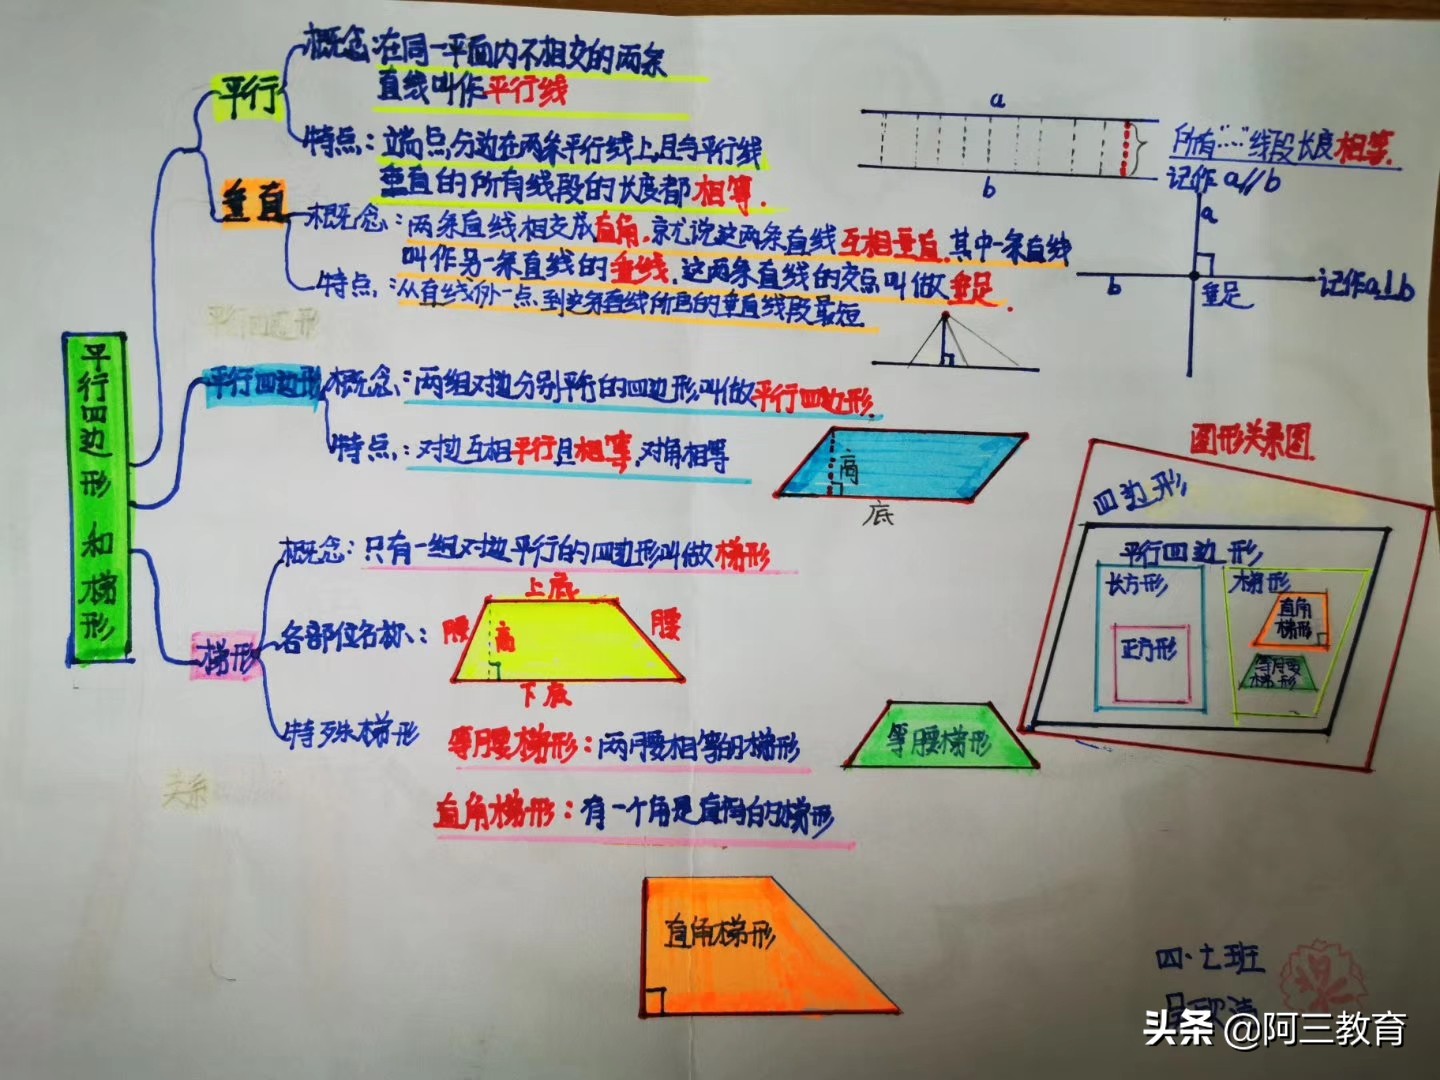 概念:在同一平面内不相交的两条
直线叫作平行线
平行
特点:立端点,分边在两条平行线上,且与平行线
垂直的所有线段的长度都相等.
a
b
所有……线段长度相等.
记作a//b
垂直
概念:两条直线相交成直角,就说这两条直线互相垂直.其中一条直线
叫作另一条直线的垂线.这两条直线的交点叫做垂足.
特点:从直线外一点,到这条直线所画的垂直线段最短
a
b
垂足
记作a⊥b
平行四边形
平行四边形和梯形
平行四边形
概念:两组对边分别平行的四边形,叫做平行四边形.
特点:对边互相平行且相等,对角相等
高
底
图形关系图.
四边形
平行四边形
长方形
正方形
梯形
直角
梯形
等腰
梯形
梯形
概念:只有一组对边平行的四边形叫做梯形
各部位名称:
上底
腰
高
腰
下底
特殊梯形
等腰梯形:两腰相等的梯形
等腰梯形
直角梯形:有一个角是直角的梯形
关系
直角梯形
四·七班
头条 @阿三教育